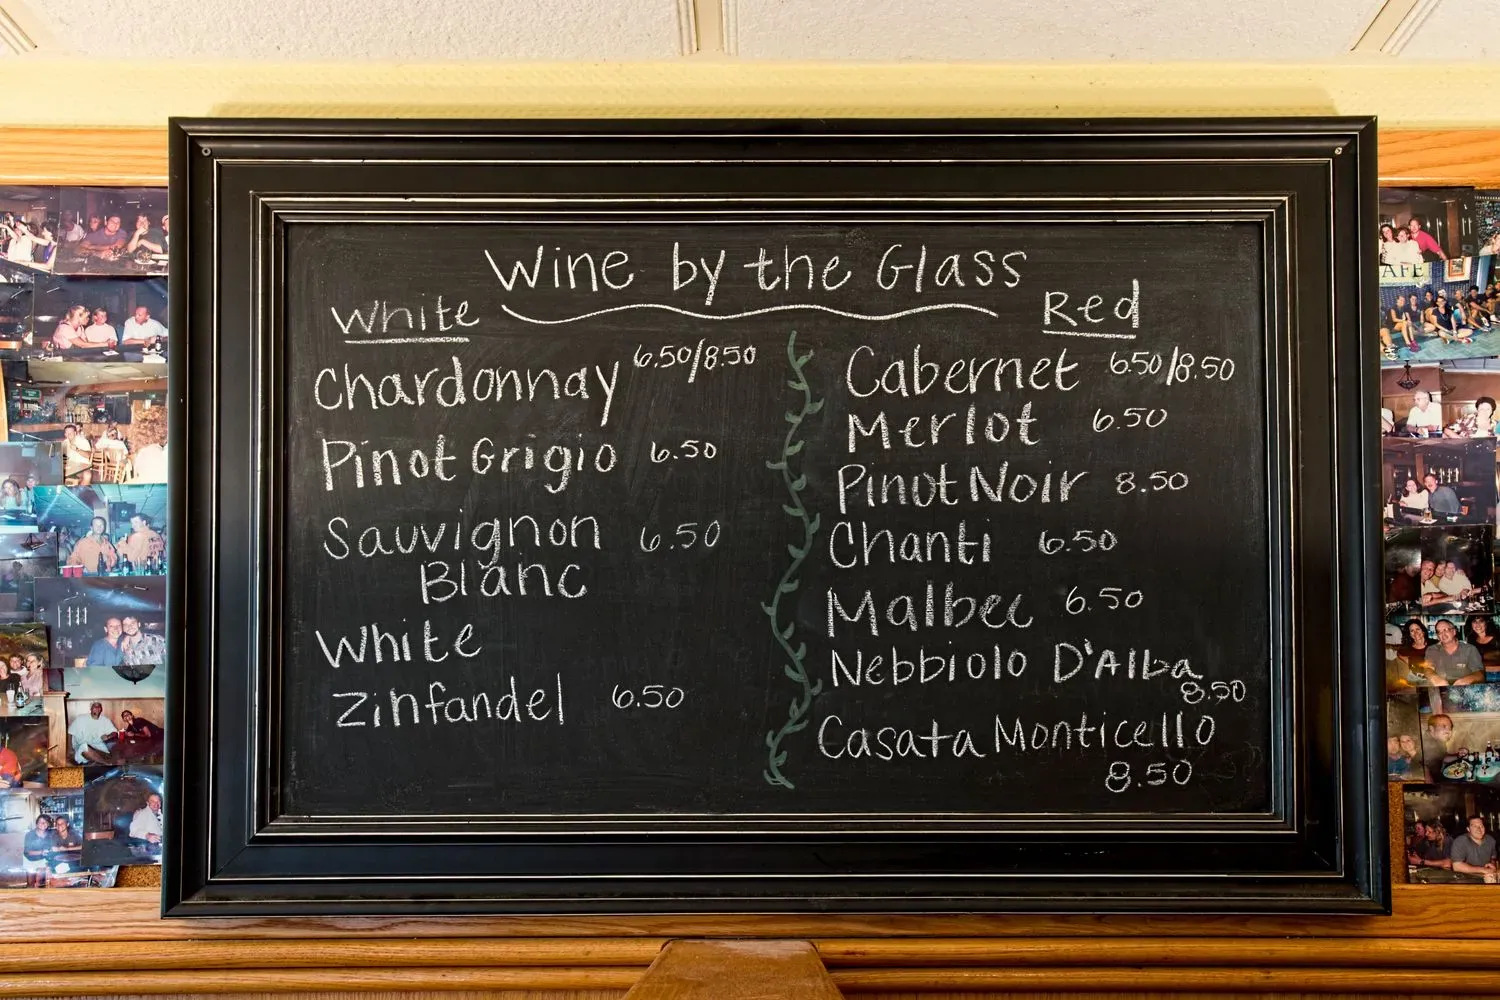 Wine by the Glass
White
Chardonnay 6.50/8.50
Pinot Grigio 6.50
Sauvignon 6.50
Blanc
White
Zinfandel 6.50
Red
Cabernet 6.50/8.50
Merlot 6.50
Pinot Noir 8.50
Chanti 6.50
Malbec 6.50
Nebbiolo D'Alba
8.50
Casata Monticello
8.50
AFE